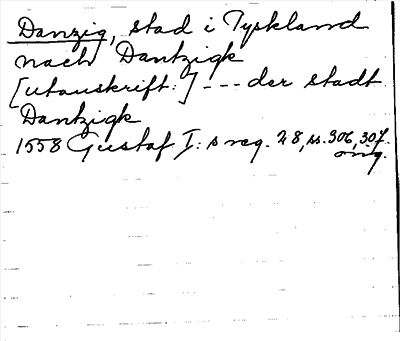 Danzig, stad i Tyskland
nach Dantzigk
[utanskrift:] --- der stadt
Dantzigk
1558 Gustaf I:s reg. 28, ss. 306, 307.
orig.